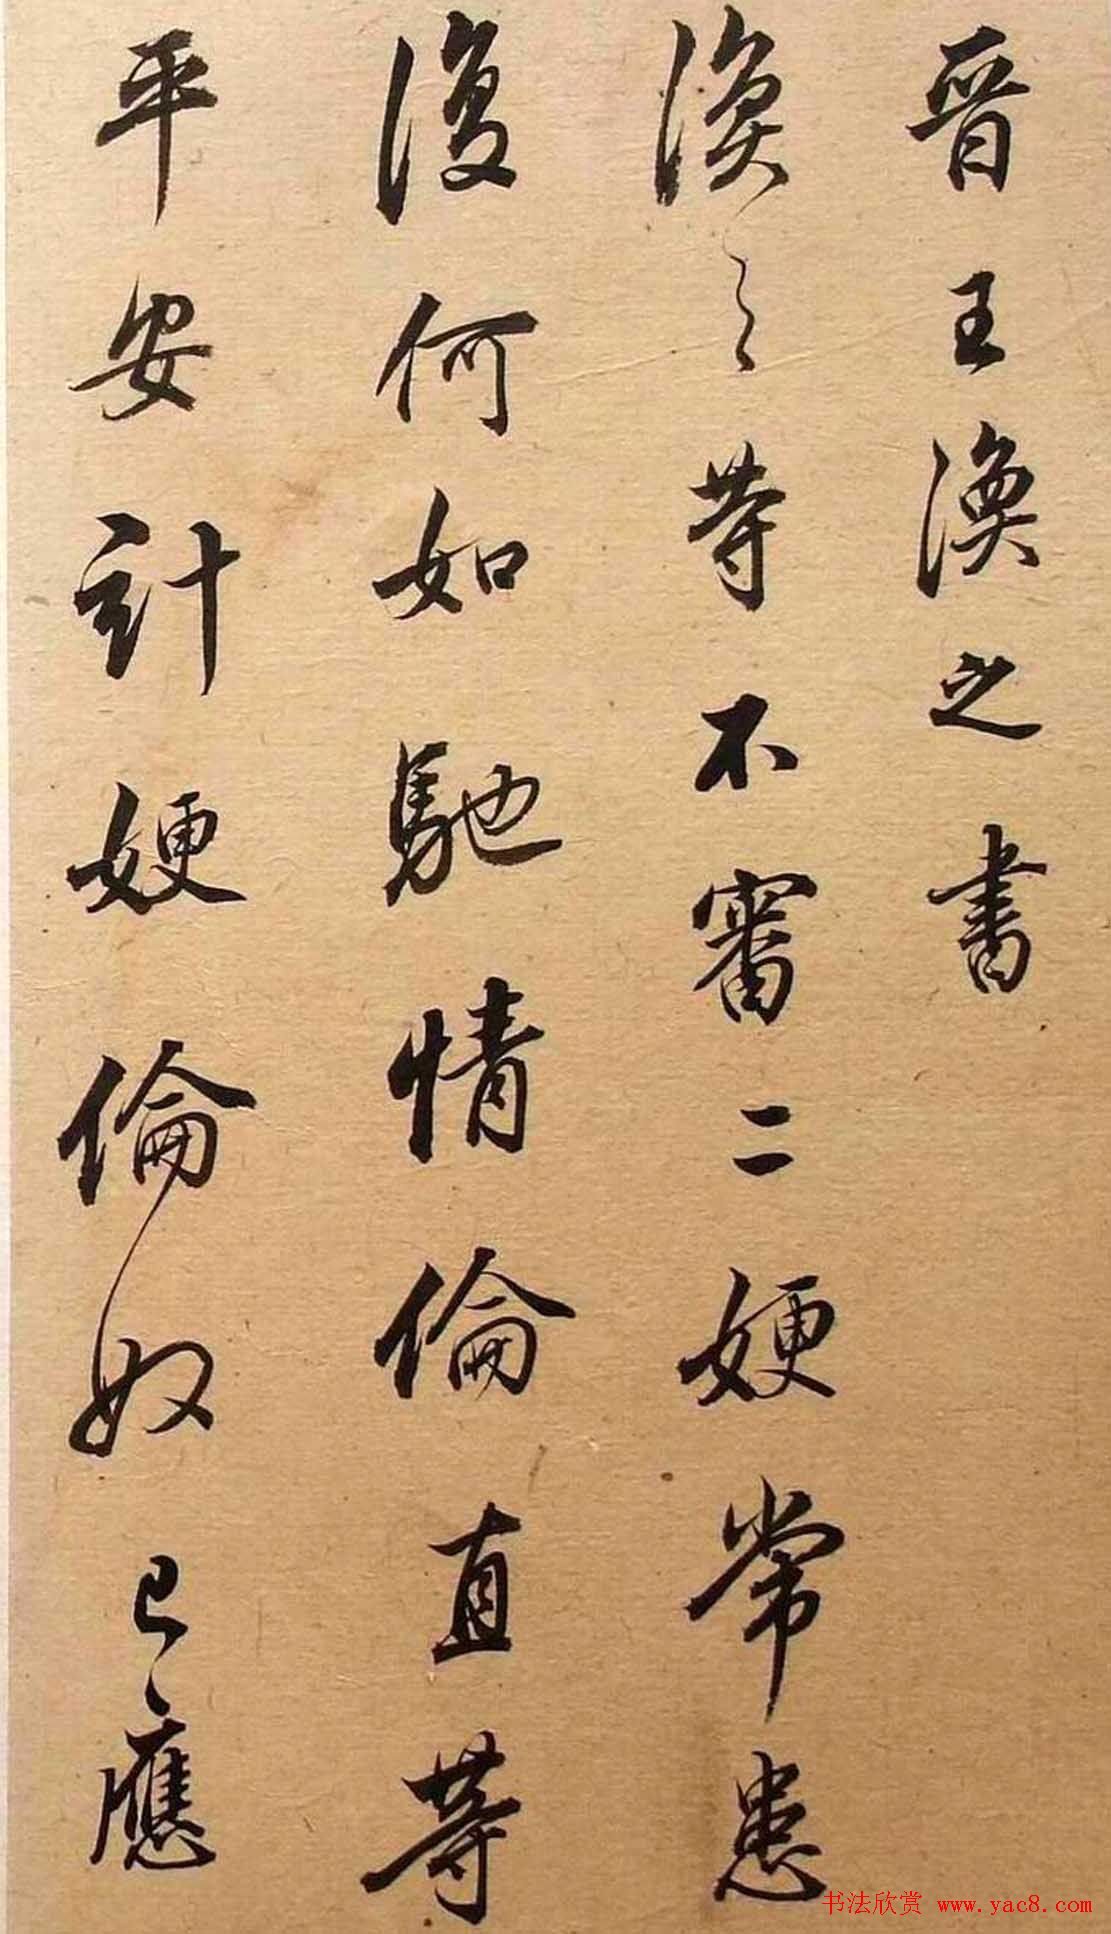 晉王渙之書
渙之等不審二㛐常患
復何如馳情倫直等
平安計㛐倫奴已應
书法欣赏 www.yac8.com